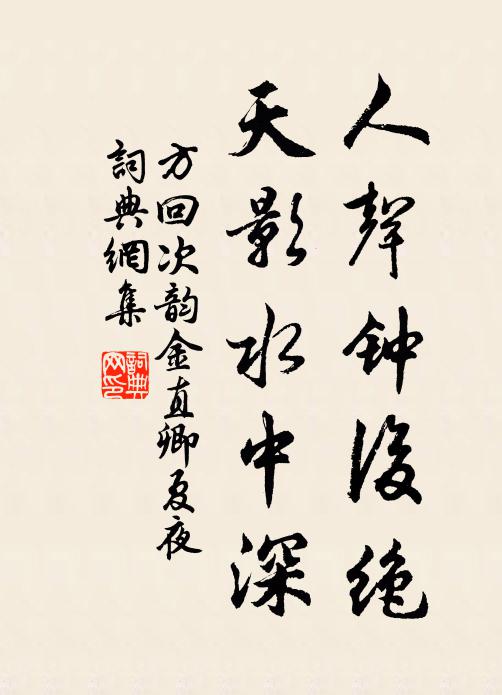 人聲钟後絶
天影水中深
方回次韵金直卿夏夜
詞典網集
詞典网印